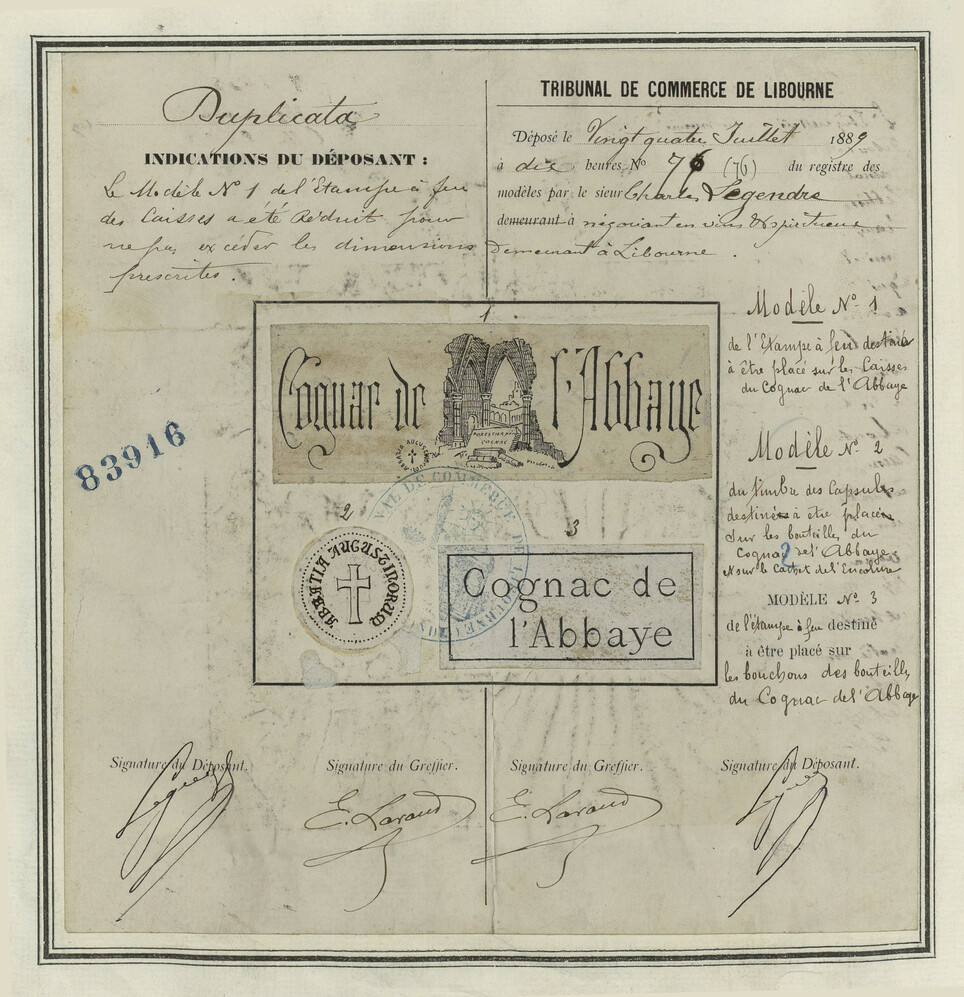 Duplicata
INDICATIONS DU DÉPOSANT :
Le Modèle N° 1 de l'Etampe à feu
des Caisses a été Réduit pour
ne pas excéder les dimensions
prescrites.
TRIBUNAL DE COMMERCE DE LIBOURNE
Déposé le Vingt quatre Juillet 1889
à dix heures N° 76 (76) du registre des
modèles par le sieur Charles Legendre
demeurant à négociant en vins & spiritueux
Demeurant à Libourne.
1
Cognac de l'Abbaye
COGNAC
83916
2
ABBATIA AUGUSTINORUM
3
Cognac de
l'Abbaye
TRIBUNAL DE COMMERCE DE LIBOURNE
Modèle N° 1
de l'Etampe à feu destinée
à être placé sur les Caisses
du Cognac de l'Abbaye
Modèle N° 2
du timbre des Capsules
destinées à être placées
sur les bouteilles du
Cognac de l'Abbaye
et sur le Cachet de l'Encolure
2
MODÈLE N° 3
de l'étampe à feu destiné
à être placé sur
les bouchons des bouteilles
du Cognac de l'Abbaye
Signature du Déposant.
Signature du Greffier.
Signature du Greffier.
Signature du Déposant.
E. Lavaud
E. Lavaud